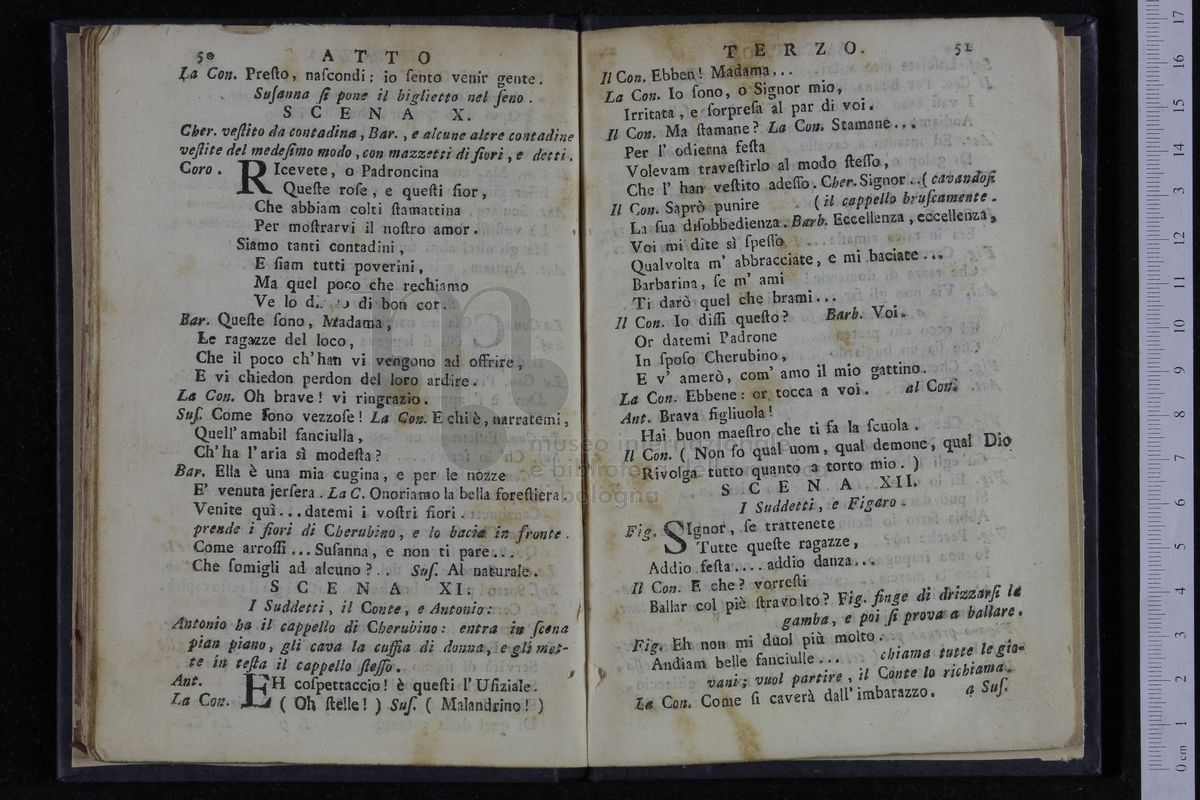 50 ATTO
La Con. Preſto, naſcondi: io ſento venir gente.
Suſanna ſi pone il biglietto nel ſeno.
SCENA X.
Cher. veſtito da contadina, Bar., e alcune altre contadine
veſtite del medeſimo modo, con mazzetti di fiori, e detti.
Coro. RIcevete, o Padroncina
Queſte roſe, e queſti fior,
Che abbiam colti ſtamattina
Per moſtrarvi il noſtro amor.
Siamo tanti contadini,
E ſiam tutti poverini,
Ma quel poco che rechiamo
Ve lo di bon cor.
Bar. Queſte ſono, Madama,
Le ragazze del loco,
Che il poco ch'han vi vengono ad offrire,
E vi chiedon perdon del loro ardire.
La Con. Oh brave! vi ringrazio.
Suſ. Come ſono vezzoſe! La Con. E chi è, narratemi,
Quell'amabil fanciulla,
Ch'ha l'aria sì modeſta?
Bar. Ella è una mia cugina, e per le nozze
E' venuta jerſera. La C. Onoriamo la bella foreſtiera.
Venite quì...datemi i voſtri fiori.
prende i fiori di Cherubino, e lo bacia in fronte.
Come arroſſi...Suſanna, e non ti pare...
Che ſomigli ad alcuno?.. Suſ. Al naturale.
SCENA XI.
I Suddetti, il Conte, e Antonio.
Antonio ha il cappello di Cherubino: entra in ſcena
pian piano, gli cava la cuffia di donna, e gli met-
te in teſta il cappello ſteſſo.
Ant. EH coſpettaccio! è queſti l'Ufiziale.
La Con. ( Oh ſtelle! ) Suſ. ( Malandrino! )
TERZO. 51
Il Con. Ebben! Madama...
La Con. Io ſono, o Signor mio,
Irritata, e ſorpreſa al par di voi.
Il Con. Ma ſtamane? La Con. Stamane...
Per l' odierna feſta
Volevam traveſtirlo al modo ſteſſo,
Che l' han veſtito adeſſo. Cher. Signor..( cavandoſi
Il Con. Saprò punire ( il cappello bruſcamente.
La ſua diſobbedienza. Barb. Eccellenza, eccellenza,
Voi mi dite sì ſpeſſo
Qualvolta m' abbracciate, e mi baciate...
Barbarina, ſe m' ami
Ti darò quel che brami...
Il Con. Io diſſi queſto? Barb. Voi.
Or datemi Padrone
In ſpoſo Cherubino,
E v' amerò, com' amo il mio gattino.
La Con. Ebbene: or tocca a voi. al Con.
Ant. Brava figliuola!
Hai buon maeſtro che ti fa la ſcuola.
Il Con. ( Non ſo qual uom, qual demone, qual Dio
Rivolga tutto quanto a torto mio. )
SCENA XII.
I Suddetti, e Figaro.
Fig. SIgnor, ſe trattenete
Tutte queſte ragazze,
Addio feſta.... addio danza...
Il Con. E che? vorreſti
Ballar col piè ſtravolto? Fig. finge di drizzarſi la
gamba, e poi ſi prova a ballare.
Fig. Eh non mi duol più molto.
Andiam belle fanciulle... chiama tutte le gio-
vani; vuol partire, il Conte lo richiama.
La Con. Come ſi caverà dall'imbarazzo. a Suſ.
museo internazionale
e biblioteca della musica
di bologna